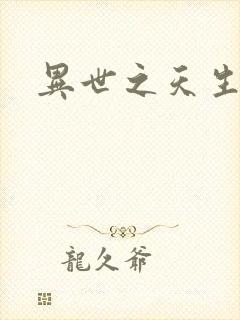 異世之天生
龍久爺